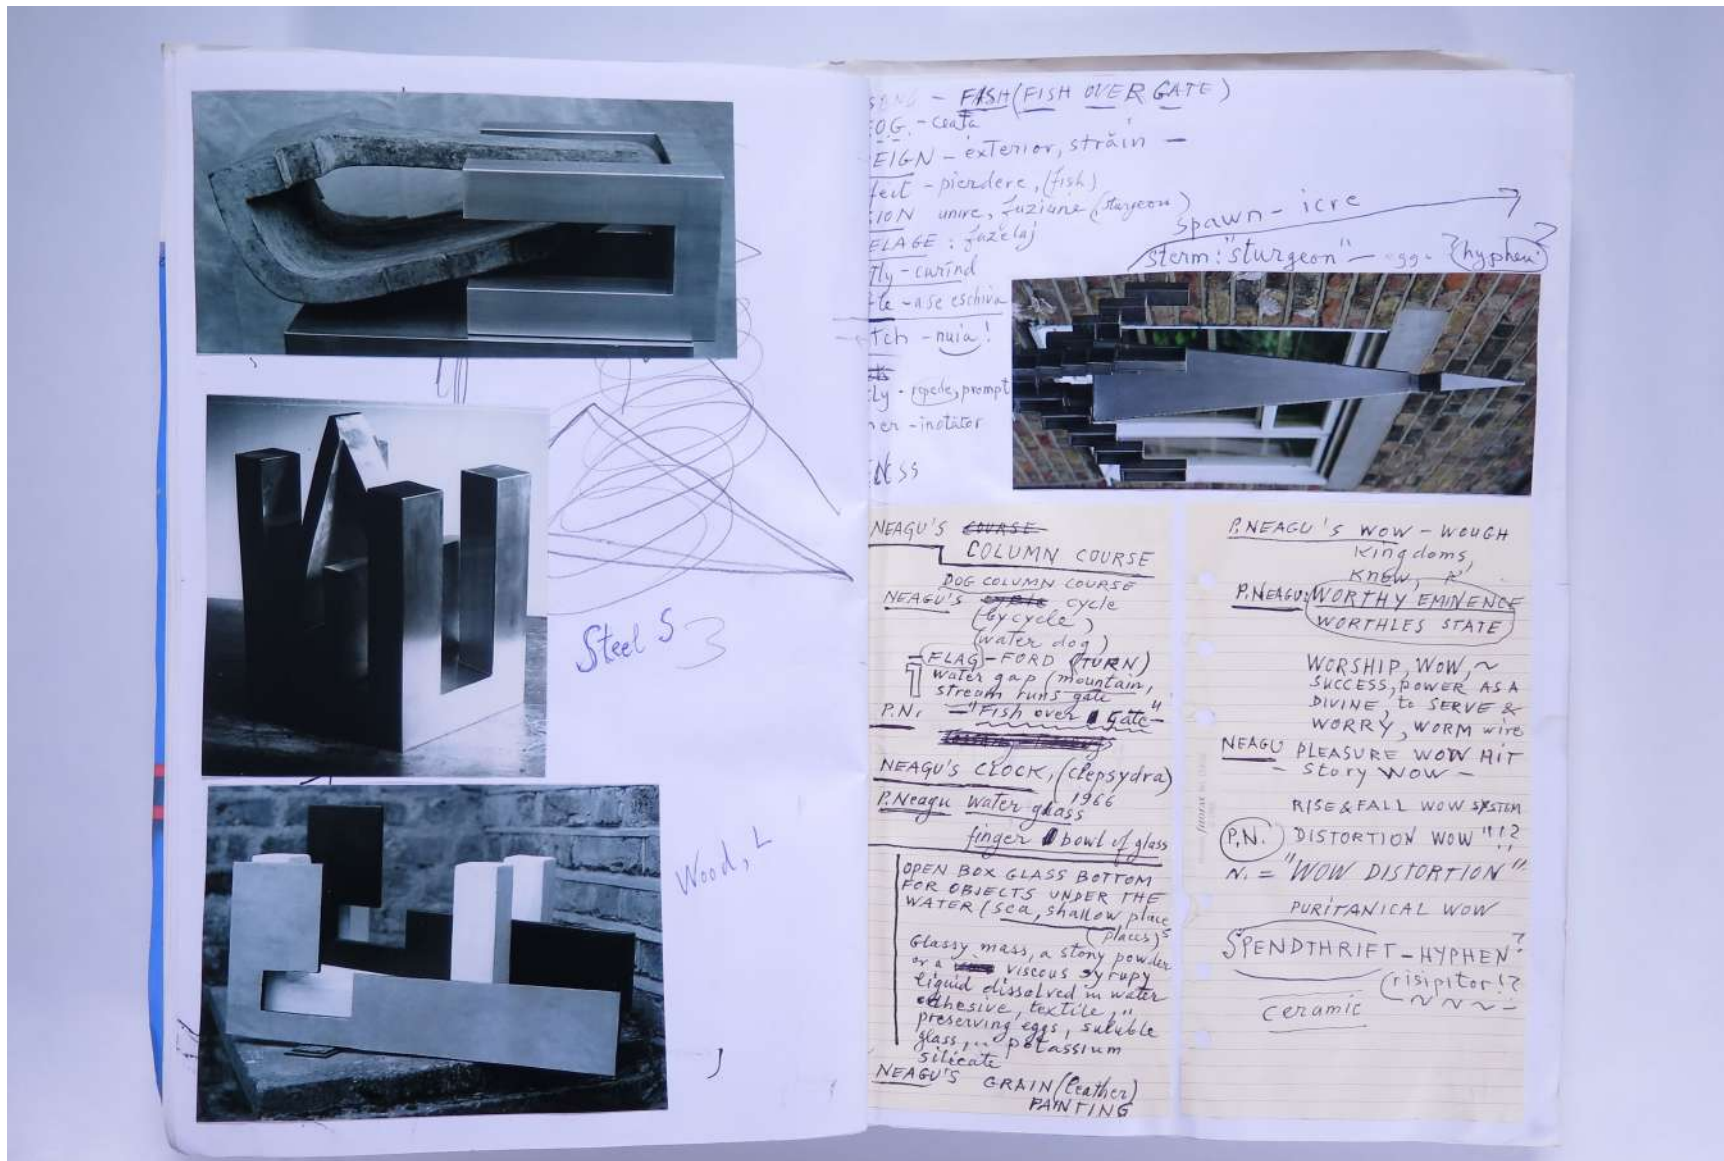 Steel S 3
Wood, L
- FISH (FISH OVER GATE)
OG. - ceață
EIGN - exterior, străin -
fect - pierdere, (fish)
ION unire, fuziune (sturgeon)
ELAGE: fuzelaj
tly - curînd
le - a se eschiva
tch - nuia!
ly - repede, prompt
er - inotător
NESS
spawn - icre
sterm: "sturgeon" - egg - (hyphen)?
NEAGU'S COURSE
COLUMN COURSE
DOG COLUMN COURSE
NEAGU'S cycle cycle
(bycycle)
(water dog)
(FLAG)-FORD (TURN)
water gap (mountain,
stream runs gate
P.N. - "Fish over gate"-
NEAGU'S CLOCK, (clepsydra)
P.Neagu water glass 1966
finger bowl of glass
OPEN BOX GLASS BOTTOM
FOR OBJECTS UNDER THE
WATER (sea, shallow place
(places)s
Glassy mass, a stony powder
or a viscous syrupy
liquid dissolved in water
adhesive, textile, "
preserving eggs, suluble
glass, .. potassium
silicate
NEAGU'S GRAIN (leather)
PAINTING
P.NEAGU'S WOW - WOUGH
Kingdoms,
KNEW,
P.NEAGU: WORTHY EMINENCE
WORTHLES STATE
WORSHIP, WOW, ~
SUCCESS, POWER AS A
DIVINE, to SERVE &
WORRY, WORM wire
NEAGU PLEASURE WOW HIT
- Story WOW -
RISE & FALL WOW SYSTEM
P.N. DISTORTION WOW "!?
N. = "WOW DISTORTION"
PURITANICAL WOW
SPENDTHRIFT - HYPHEN?
(risipitor!?
ceramic
filofax